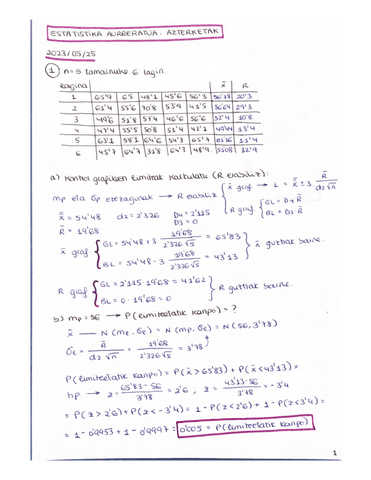 ESTATISTIKA AURRERATUA: AZTERKETAK
2023/05/25
① n=5 tamainuko 6 lagin
Lagina x̄ R
1 65'9 65 48'1 45'6 56'3 56'18 20'3
2 61'4 55'6 70'8 53'9 41'5 56'64 29'3
3 49'6 51'8 57'4 46'6 56'6 52'4 10'8
4 47'4 55'5 50'8 51'4 42'1 49'44 13'4
5 63'1 58'1 64'6 54'3 65'7
6 45'7 64'7 31'8 64'3 48'9 51'08 32'9
a) Kontrol grafikoen limiteak kalkulatu (R erabiliz):
mp eta σp ezezagunak → R erabiliz { x̄ graf → L = x̿ ± 3 R̄ / d2√n
R graf { GL = D4 R̄
BL = D3 R̄
x̿ = 54'48 d2 = 2'326 D4 = 2'115
R̄ = 19'68 D3 = 0
x̄ graf { GL = 54'48 + 3 19'68 / 2'326√5 = 65'83
BL = 54'48 - 3 19'68 / 2'326√5 = 43'13 } x̄ guztiak barne.
R graf { GL = 2'115 · 19'68 = 41'62
BL = 0 · 19'68 = 0 } R guztiak barne.
b) mp = 56 → P(limiteetatik kanpo) = ?
x̄ → N(mp, σx̄) = N(mp, σx̄) = N(56, 3'78)
σx̄ = R̄ / d2√n = 19'68 / 2'326√5 = 3'78
P(limiteetatik kanpo) = P(x̄ > 65'83) + P(x̄ < 43'13) =
tip → z = 65'83 - 56 / 3'78 = 2'6 ; z = 43'13 - 56 / 3'78 = -3'4
= P(z > 2'6) + P(z < -3'4) = 1 - P(z < 2'6) + 1 - P(z < 3'4) =
= 1 - 0'9953 + 1 - 0'9997 = 0'005 = P(limiteetatik kanpo)
1